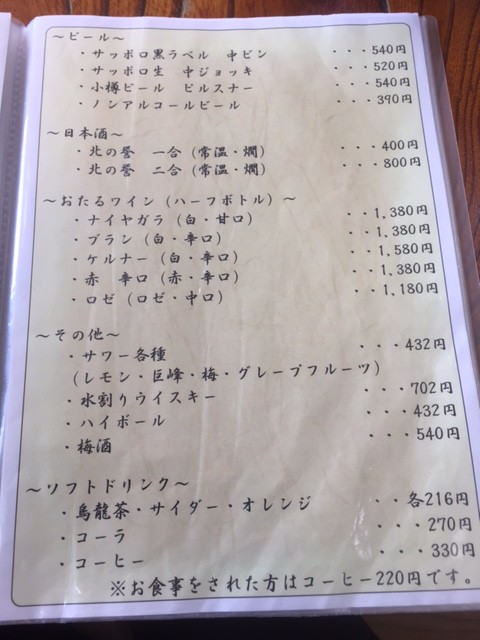 ～ビール～
・サッポロ黒ラベル 中ビン ・・・540円
・サッポロ生 中ジョッキ ・・・520円
・小樽ビール ピルスナー ・・・540円
・ノンアルコールビール ・・・390円
～日本酒～
・北の誉 一合（常温・燗） ・・・400円
・北の誉 二合（常温・燗） ・・・800円
～おたるワイン（ハーフボトル）～
・ナイヤガラ（白・甘口） ・・1,380円
・ブラン（白・辛口） ・・1,380円
・ケルナー（白・辛口） ・・1,580円
・赤 辛口（赤・辛口） ・・1,380円
・ロゼ（ロゼ・中口） ・・1,180円
～その他～
・サワー各種 ・・・432円
（レモン・巨峰・梅・グレープフルーツ）
・水割りウイスキー ・・・702円
・ハイボール ・・・432円
・梅酒 ・・・540円
～ソフトドリンク～
・烏龍茶・サイダー・オレンジ ・・各216円
・コーラ ・・・270円
・コーヒー ・・・330円
※お食事をされた方はコーヒー220円です。